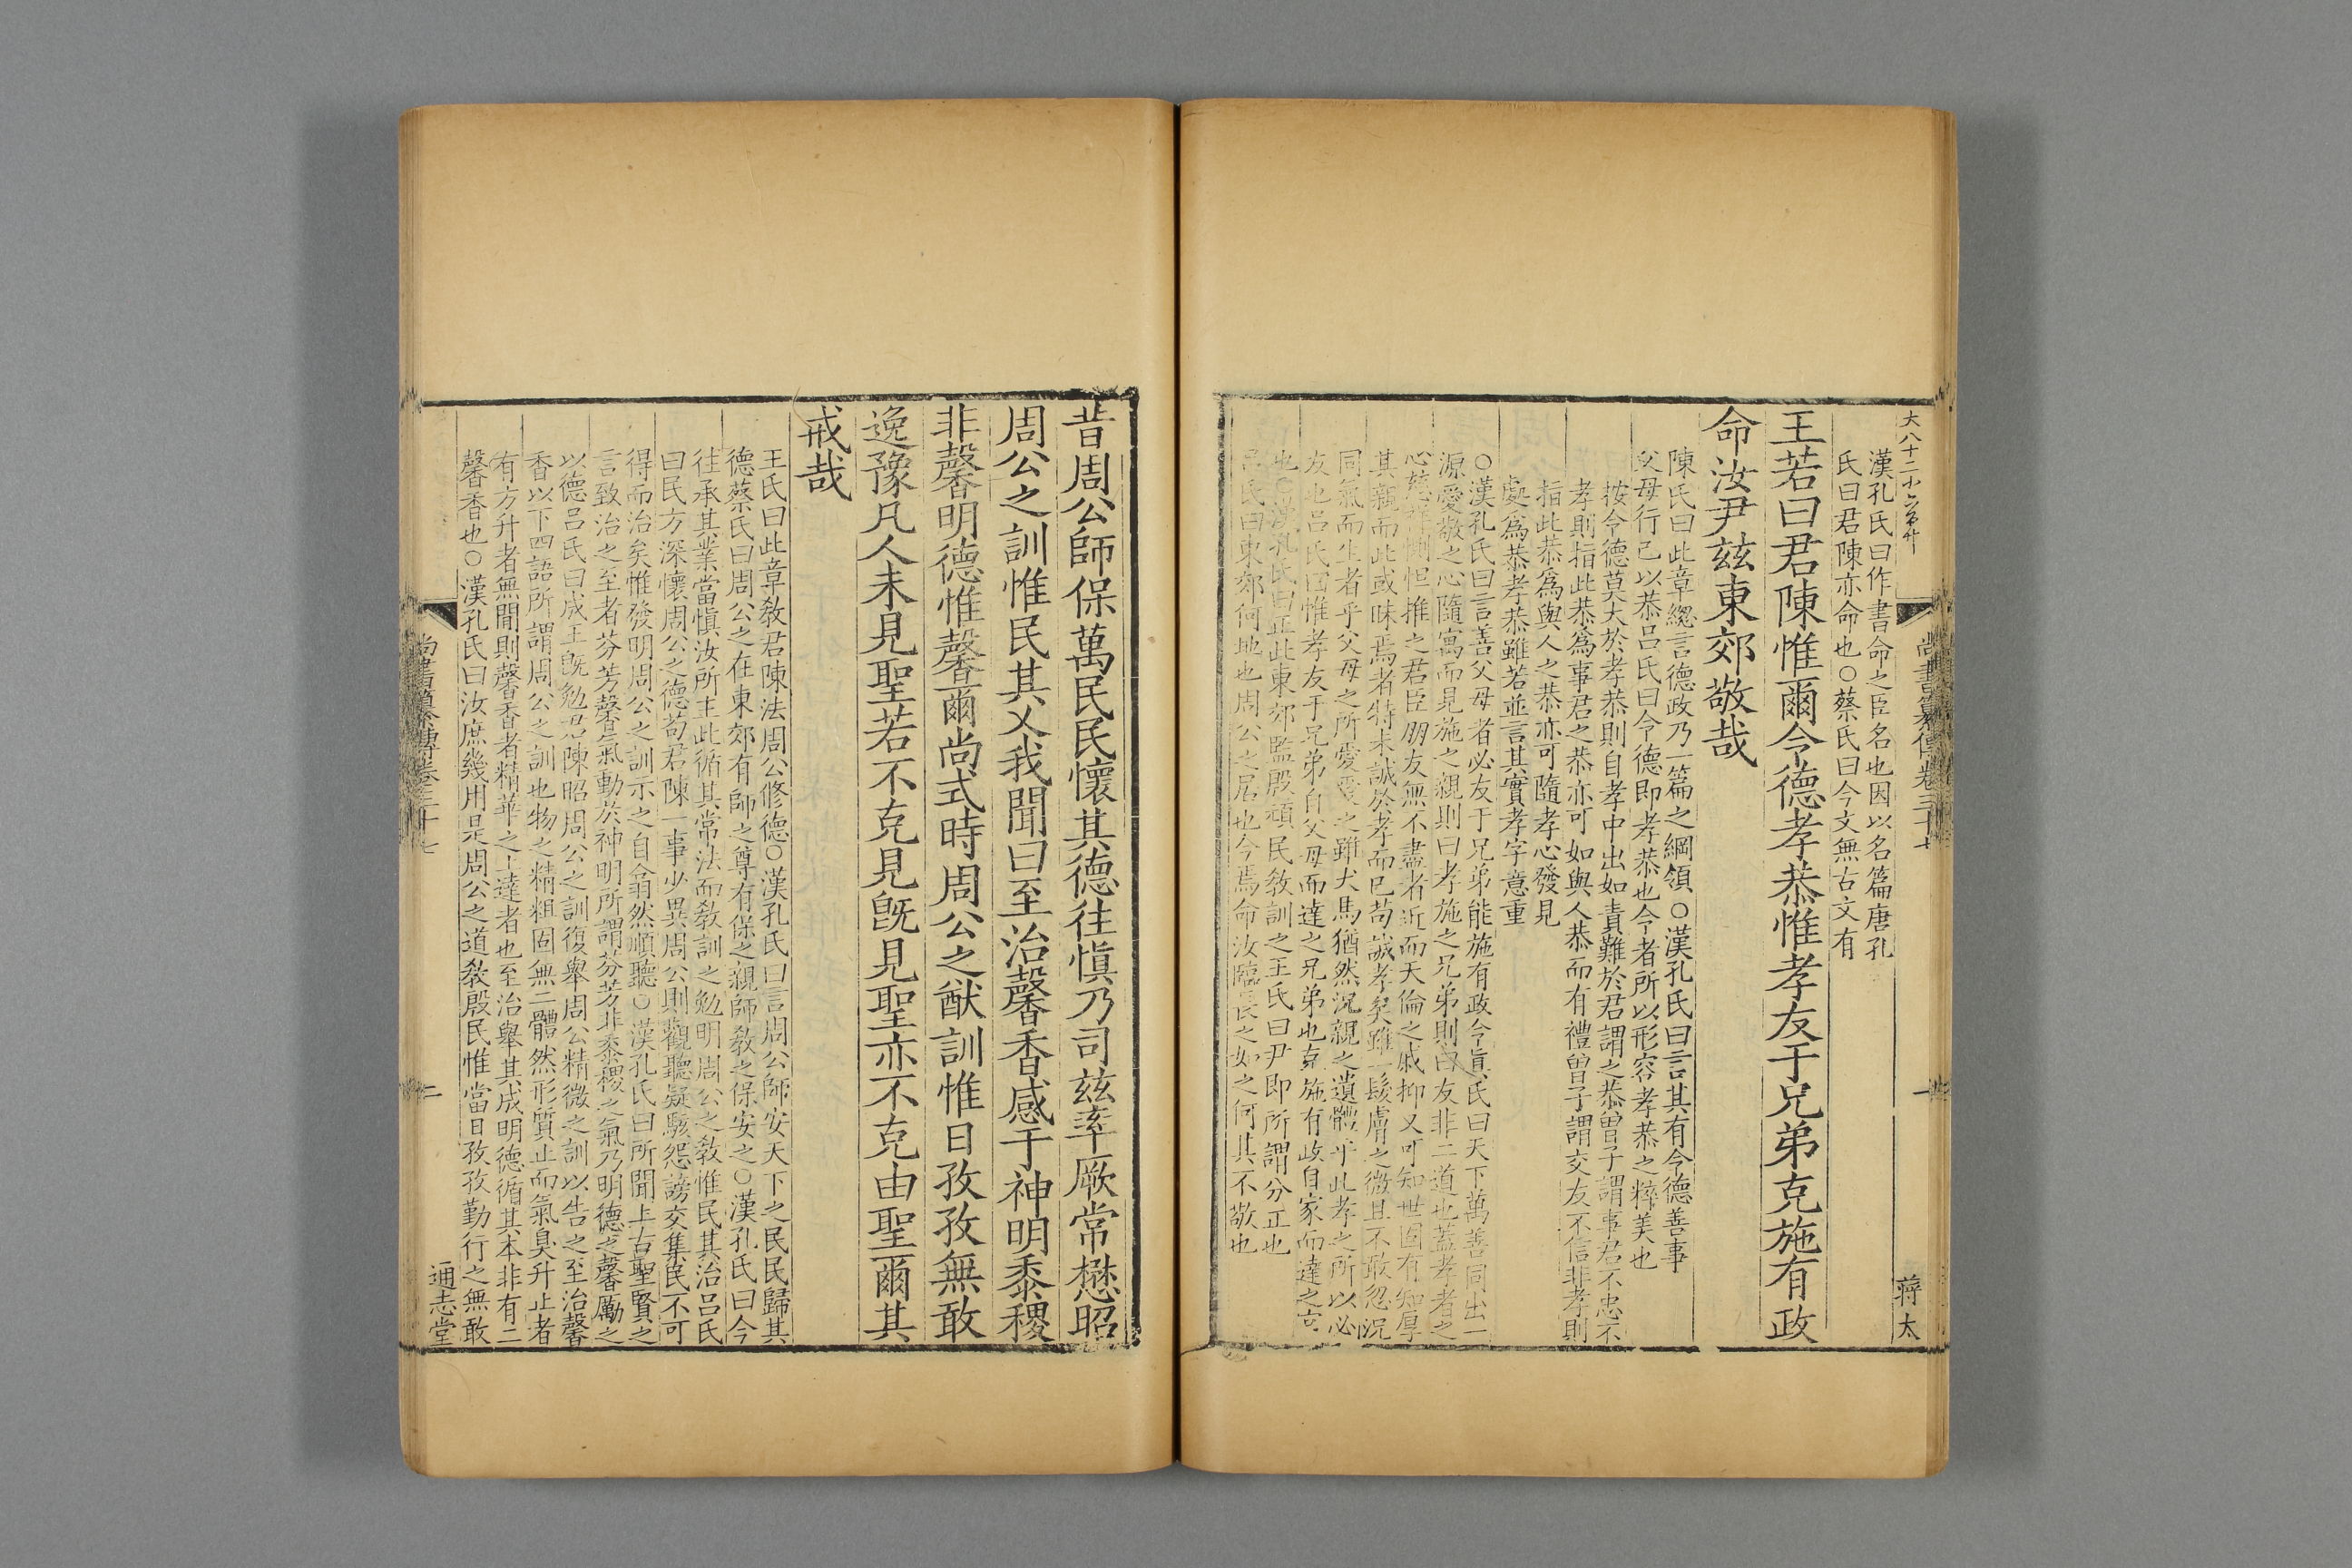 大八十二小六百卅
尚書纂傳卷三十七
一
蔣太
漢孔氏曰作書命之臣名也因以名篇唐孔
氏曰君陳亦命也○蔡氏曰今文無古文有
王若曰君陳惟爾令德孝恭惟孝友于兄弟克施有政
命汝尹兹東郊敬哉
陳氏曰此章緫言德政乃一篇之綱領○漢孔氏曰言其有令德善事
父母行己以恭吕氏曰令德即孝恭也令者所以形容孝恭之粹美也
按令德莫大於孝恭則自孝中出如責難於君謂之恭曾子謂事君不忠不
孝則指此恭爲事君之恭亦可如與人恭而有禮曾子謂交友不信非孝則
指此恭爲與人之恭亦可隨孝心發見
處爲恭孝恭雖若並言其實孝字意重
○漢孔氏曰言善父母者必友于兄弟能施有政令真氏曰天下萬善同出一
源愛敬之心隨寓而見施之親則曰孝施之兄弟則曰友非二道也蓋孝者之
心慈祥惻怛推之君臣朋友無不盡者近而天倫之戚抑又可知世固有知厚
其親而此或昧焉者特未誠於孝而已苟誠孝矣雖一髮膚之微且不敢忽況
同氣而生者乎父母之所愛愛之雖犬馬猶然況親之遺體乎此孝之所以必
友也吕氏曰惟孝友于兄弟自父母而達之兄弟也克施有政自家而達之
也○漢孔氏曰正此東郊監殷頑民教訓之王氏曰尹即所謂分正也
吕氏曰東郊何地也周公之居也今焉命汝臨長之如之何其不敬也
昔周公師保萬民民懷其德往慎乃司兹率厥常懋昭
周公之訓惟民其乂我聞曰至治馨香感于神明黍稷
非馨明德惟馨爾尚式時周公之猷訓惟日孜孜無敢
逸豫凡人未見聖若不克見既見聖亦不克由聖爾其
戒哉
王氏曰此章教君陳法周公修德○漢孔氏曰言周公師安天下之民民歸其
德蔡氏曰周公之在東郊有師之尊有保之親師教之保安之○漢孔氏曰今
往承其業當慎汝所主此循其常法而教訓之勉明周公之教惟民其治吕氏
曰民方深懷周公之德苟君陳一事少異周公則觀聽疑駭怨謗交集民不可
得而治矣惟發明周公之訓示之自翕然順聽○漢孔氏曰所聞上古聖賢之
言致治之至者芬芳馨氣動於神明所謂芬芳非黍稷之氣乃明德之馨勵之
以德吕氏曰成王既勉君陳昭周公之訓復舉周公精微之訓以告之至治馨
香以下四語所謂周公之訓也物之精粗固無二體然形質止而氣臭升止者
有方升者無間則馨香者精華之上達者也至治舉其成明德循其本非有二
馨香也○漢孔氏曰汝庶幾用是周公之道教殷民惟當日孜孜勤行之無敢
尚書纂傳卷三十七
二
通志堂